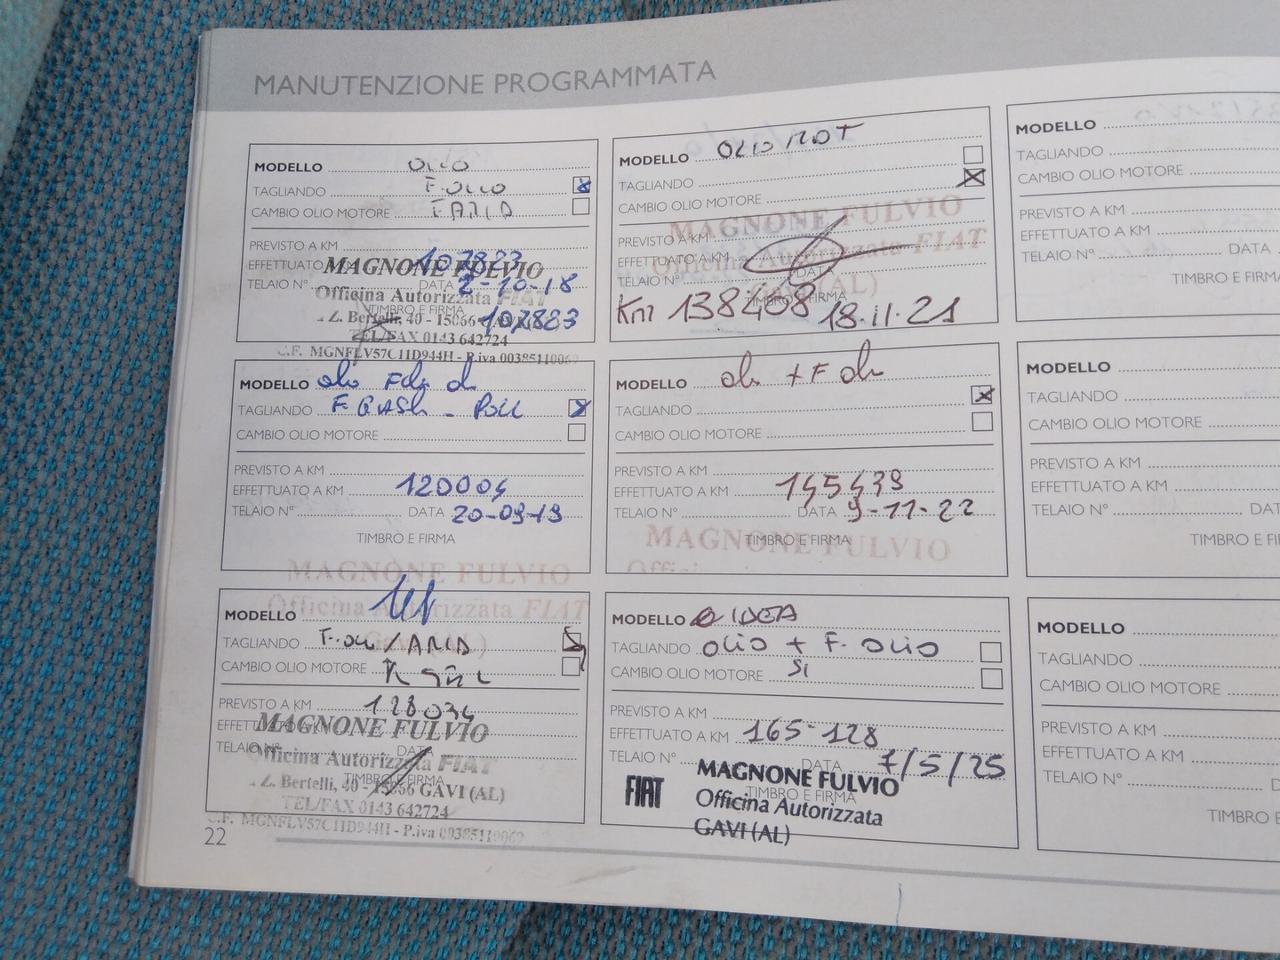 MANUTENZIONE PROGRAMMATA
MODELLO OLIO
TAGLIANDO F. OLIO
CAMBIO OLIO MOTORE F ARIA
PREVISTO A KM
EFFETTUATO A KM 107823
TELAIO N° DATA 2-10-18
MAGNONE FULVIO
Officina Autorizzata FIAT
TIMBRO E FIRMA 107823
Z. Bertelli, 40 - 15066 GAVI (AL)
TEL/FAX 0143 642724
C.F. MGNFLV57C11D944H - P.iva 0038511006
MODELLO olio
TAGLIANDO
CAMBIO OLIO MOTORE
PREVISTO A KM
EFFETTUATO A KM 120004
TELAIO N° DATA 20-09-19
TIMBRO E FIRMA
MAGNONE FULVIO
Officina Autorizzata FIAT
(AL)
MODELLO
TAGLIANDO F. /ARIA
CAMBIO OLIO MOTORE
PREVISTO A KM 128034
EFFETTUATO
TELAIO N° DATA
MAGNONE FULVIO
Officina Autorizzata FIAT
TIMBRO E FIRMA
Z. Bertelli, 40 - 15066 GAVI (AL)
TEL/FAX 0143 642724
C.F. MGNFLV57C11D944H - P.iva 00385110062
22
MODELLO OLIO MOT
TAGLIANDO
CAMBIO OLIO MOTORE
PREVISTO A KM
EFFETTUATO A KM
TELAIO N° DATA
MAGNONE FULVIO
Officina Autorizzata FIAT
GAVI (AL)
TIMBRO E FIRMA
Km 138408 18.11.21
MODELLO olio + F olio
TAGLIANDO
CAMBIO OLIO MOTORE
PREVISTO A KM
EFFETTUATO A KM 145439
TELAIO N° DATA 9-11-22
TIMBRO E FIRMA
MAGNONE FULVIO
MODELLO IDEA
TAGLIANDO OLIO + F. OLIO
CAMBIO OLIO MOTORE SI
PREVISTO A KM
EFFETTUATO A KM 165-128
TELAIO N° DATA 7/5/25
TIMBRO E FIRMA
FIAT
MAGNONE FULVIO
Officina Autorizzata
GAVI (AL)
MODELLO
TAGLIANDO
CAMBIO OLIO MOTORE
PREVISTO A KM
EFFETTUATO A KM
TELAIO N° DATA
TIMBRO E FIRMA
MODELLO
TAGLIANDO
CAMBIO OLIO MOTORE
PREVISTO A KM
EFFETTUATO A KM
TELAIO N° DAT
TIMBRO E FI
MODELLO
TAGLIANDO
CAMBIO OLIO MOTORE
PREVISTO A KM
EFFETTUATO A KM
TELAIO N° D
TIMBRO E